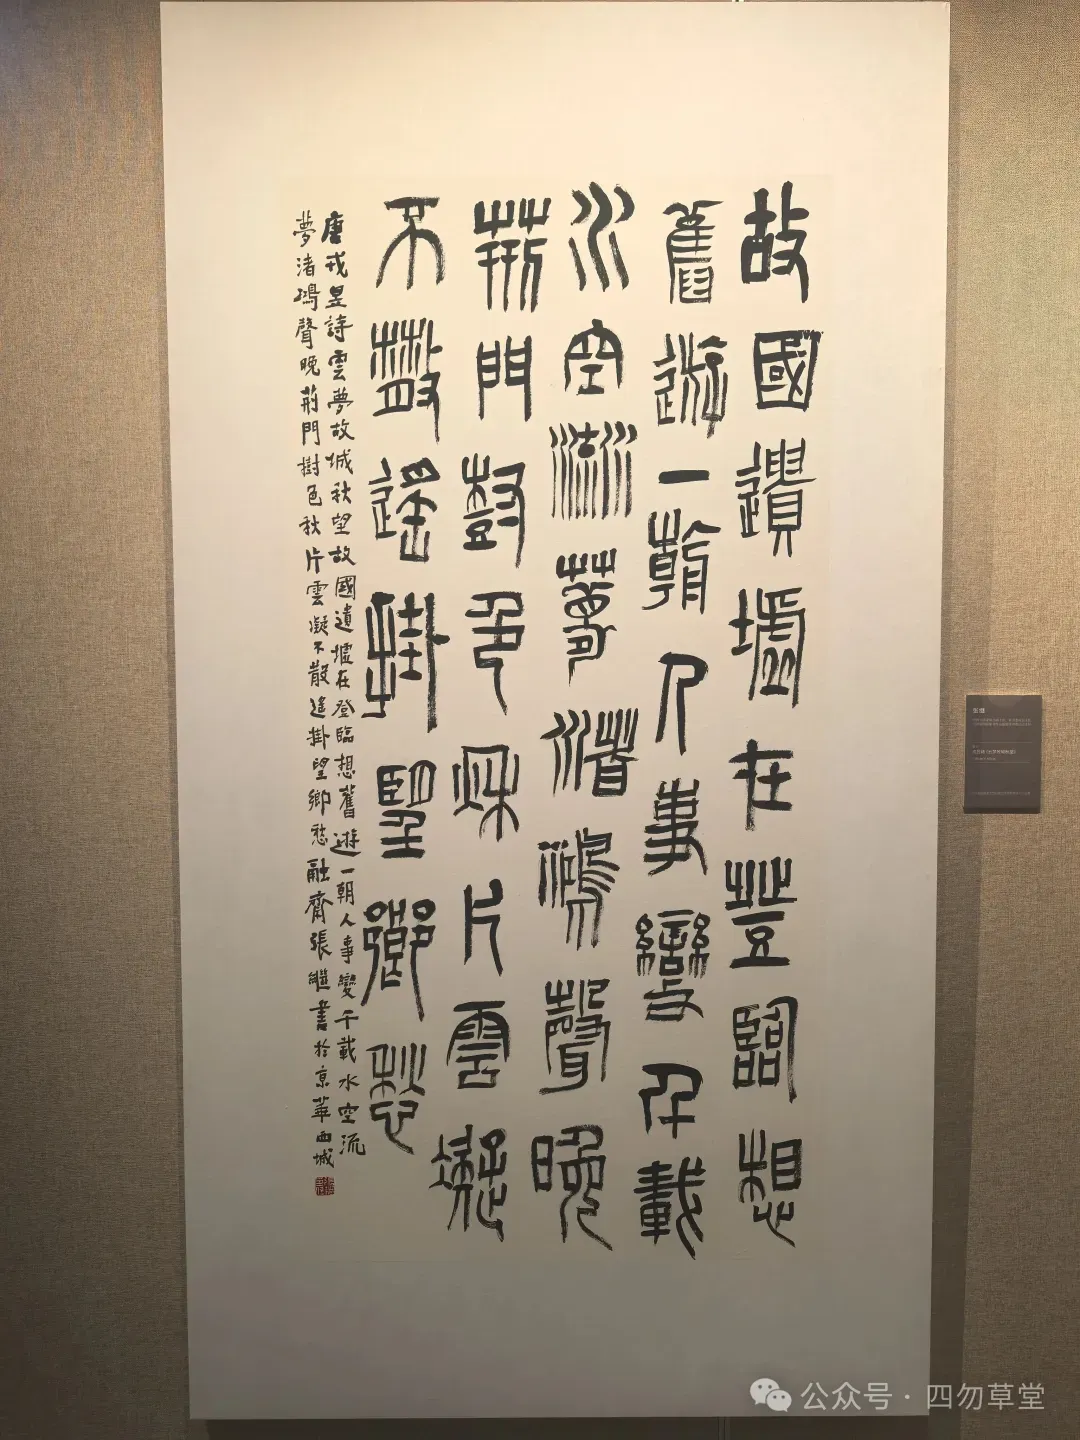 故國遺墟在登臨想
舊遊一朝人事變千載
水空流夢渚鴻聲晚
荊門樹色秋片雲凝
不散遙掛望鄉愁
唐戎昱詩雲夢故城秋望故國遺墟在登臨想舊遊一朝人事變千載水空流
夢渚鴻聲晚荊門樹色秋片雲凝不散遙掛望鄉愁融齋張繼書於京華西城
公众号·四勿草堂